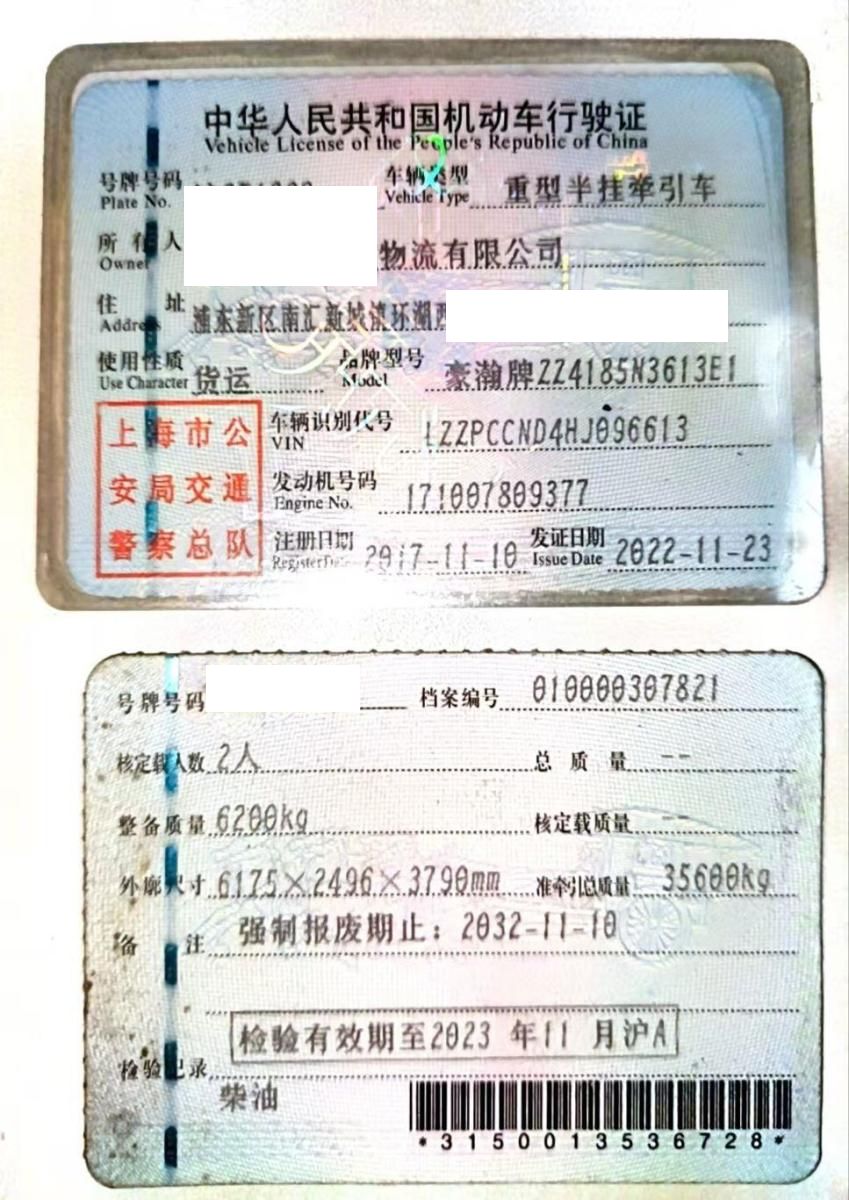 中华人民共和国机动车行驶证
Vehicle License of the People's Republic of China
号牌号码 车辆类型 重型半挂牵引车
Plate No. Vehicle Type
所有人 物流有限公司
Owner
住址 浦东新区南汇新城镇环湖西
Address
使用性质 货运 品牌型号 豪瀚牌ZZ4185N3613E1
Use Character Model
上海市公 车辆识别代号 LZZPCCND4HJ096613
VIN
安局交通 发动机号码 171007809377
Engine No.
警察总队 注册日期 2017-11-10 发证日期 2022-11-23
Register Date Issue Date
号牌号码 档案编号 010000307821
核定载人数 2人 总质量 --
整备质量 6200kg 核定载质量 --
外廓尺寸 6175×2496×3790mm 准牵引总质量 35600kg
备注 强制报废期止：2032-11-10
检验有效期至2023 年11 月沪A
检验记录
柴油
*3150013536728*